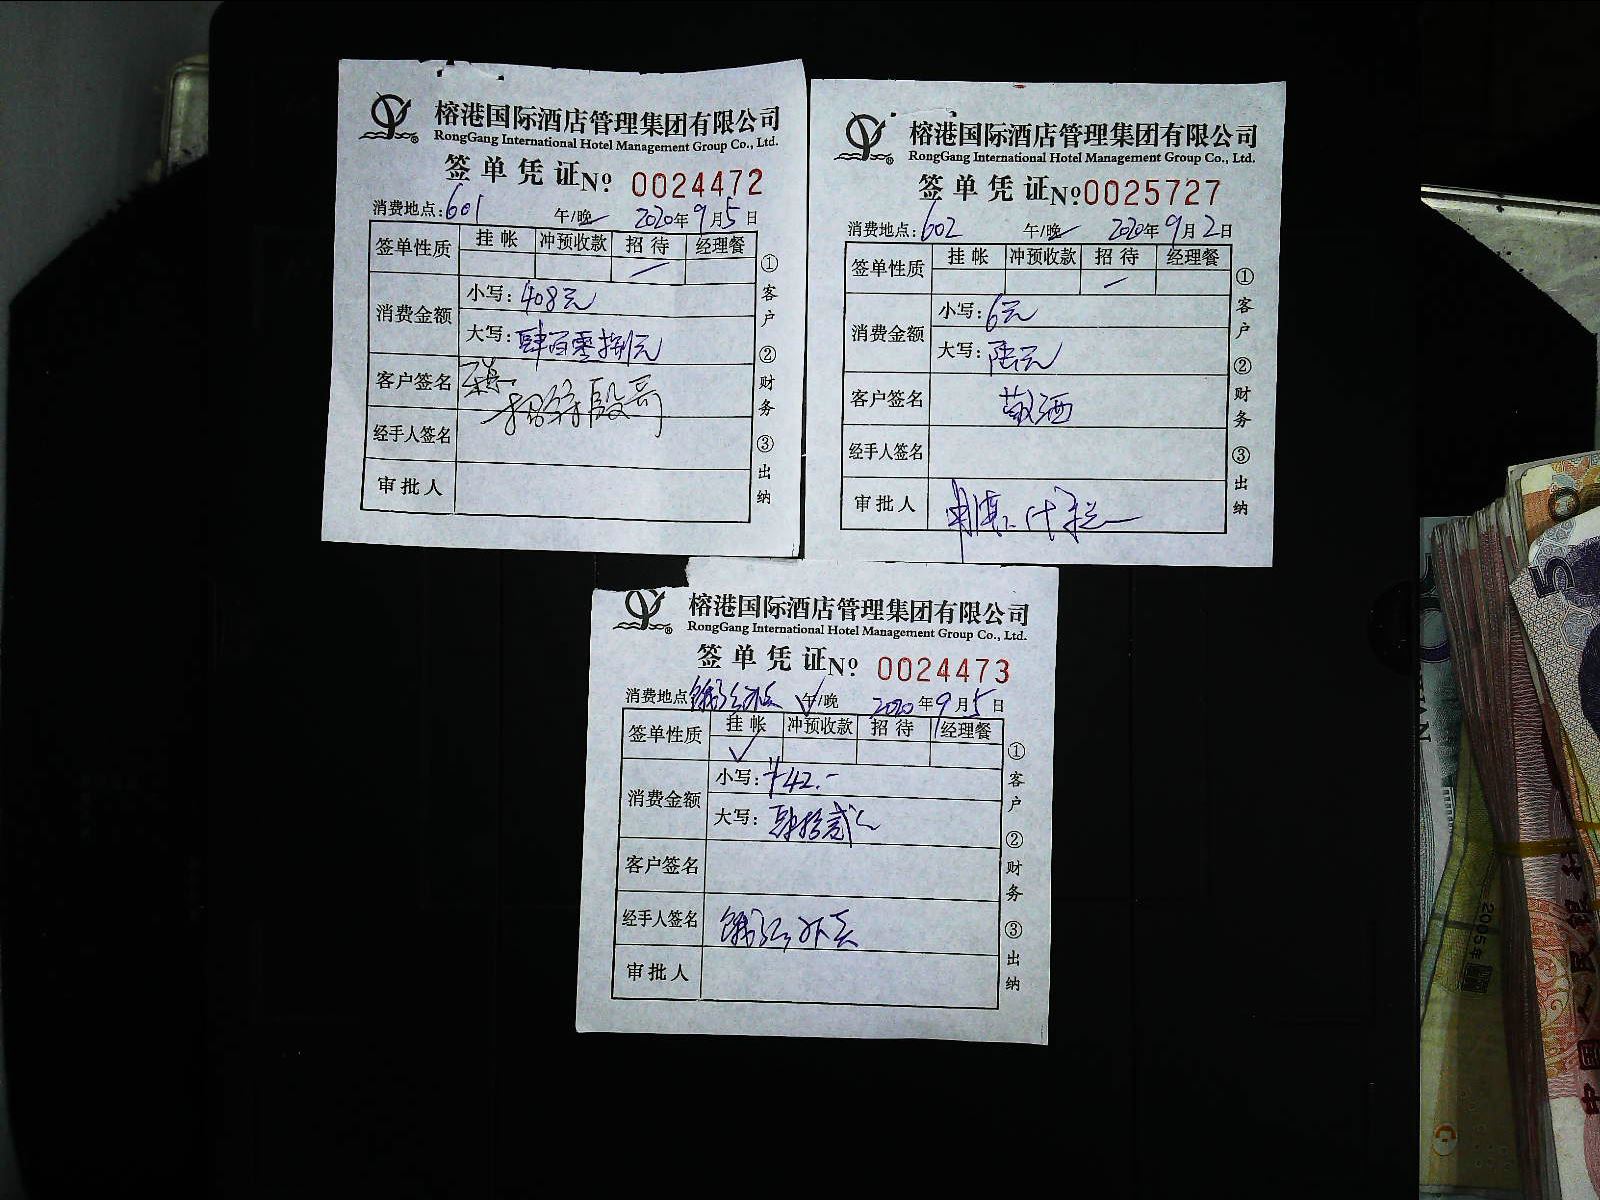 榕港国际酒店管理集团有限公司
RongGang International Hotel Management Group Co., Ltd.
签单凭证 Nº 0024472
消费地点:601 午/晚 2020年9月5日
签单性质 挂帐 冲预收款 招待 经理餐
消费金额
小写:408元
大写:肆百零捌元
客户签名
招待殷哥
经手人签名
审批人
①客户 ②财务 ③出纳
榕港国际酒店管理集团有限公司
RongGang International Hotel Management Group Co., Ltd.
签单凭证 Nº 0025727
消费地点:602 午/晚 2020年9月2日
签单性质 挂帐 冲预收款 招待 经理餐
消费金额
小写:6元
大写:陆元
客户签名 敬酒
经手人签名
审批人
①客户 ②财务 ③出纳
榕港国际酒店管理集团有限公司
RongGang International Hotel Management Group Co., Ltd.
签单凭证 Nº 0024473
消费地点 午/晚 2020年9月5日
签单性质 挂帐 冲预收款 招待 经理餐
消费金额
小写:¥42.-
大写:肆拾贰元
客户签名
经手人签名
审批人
①客户 ②财务 ③出纳
2005年
中国人民银行